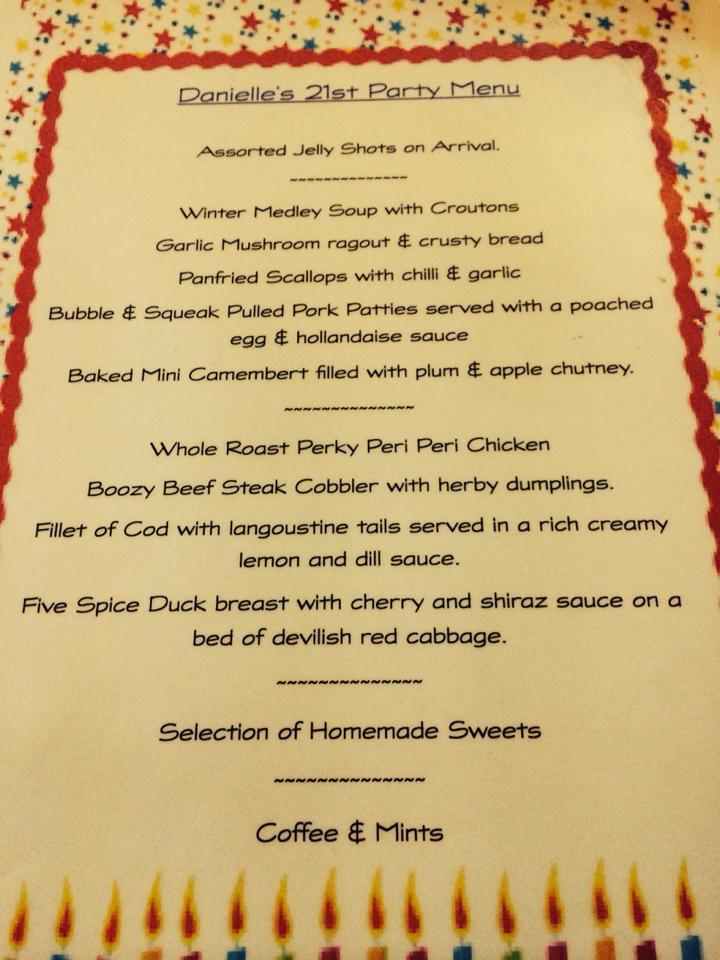 Danielle's 21st Party Menu
Assorted Jelly Shots on Arrival.
~~~~~~~~~~~~~~
Winter Medley Soup with Croutons
Garlic Mushroom ragout & crusty bread
Panfried Scallops with chilli & garlic
Bubble & Squeak Pulled Pork Patties served with a poached
egg & hollandaise sauce
Baked Mini Camembert filled with plum & apple chutney.
~~~~~~~~~~~~~~
Whole Roast Perky Peri Peri Chicken
Boozy Beef Steak Cobbler with herby dumplings.
Fillet of Cod with langoustine tails served in a rich creamy
lemon and dill sauce.
Five Spice Duck breast with cherry and shiraz sauce on a
bed of devilish red cabbage.
~~~~~~~~~~~~~~
Selection of Homemade Sweets
~~~~~~~~~~~~~~
Coffee & Mints